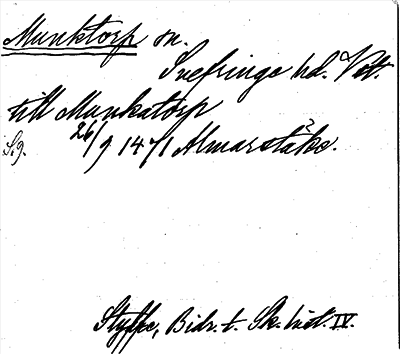 Munktorp sn.
Snefringe hd. Vstt.
till Munkatorp
S. 9. 26/9 1471 Almarstäke.
Styffe, Bidr. t. Sk. hist. IV.